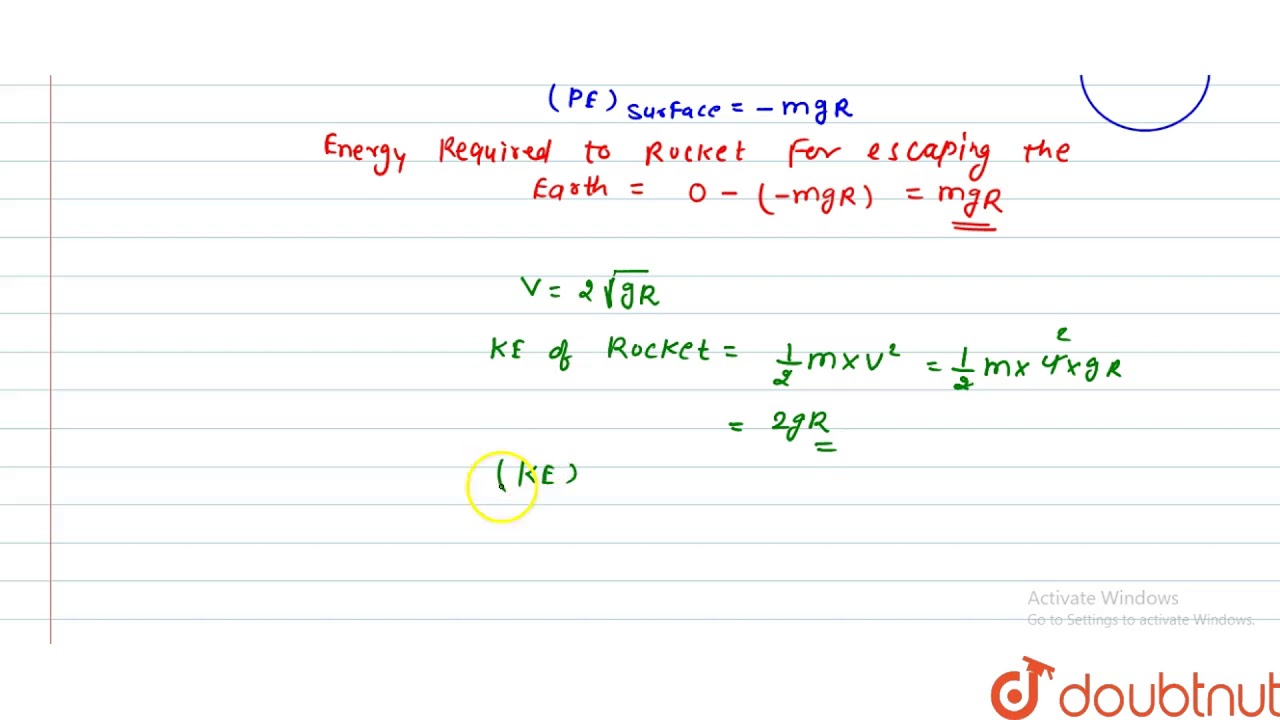 (PE) Surface = - mgR
Energy Required to Rocket For escaping the
Earth = 0 - (-mgR) = mgR
V = 2√gR
KE of Rocket = 1/2 m x v² = 1/2 m x 4 x gR
2
= 2gR
(KE)
Activate Windows
Go to Settings to activate Windows.
doubtnut